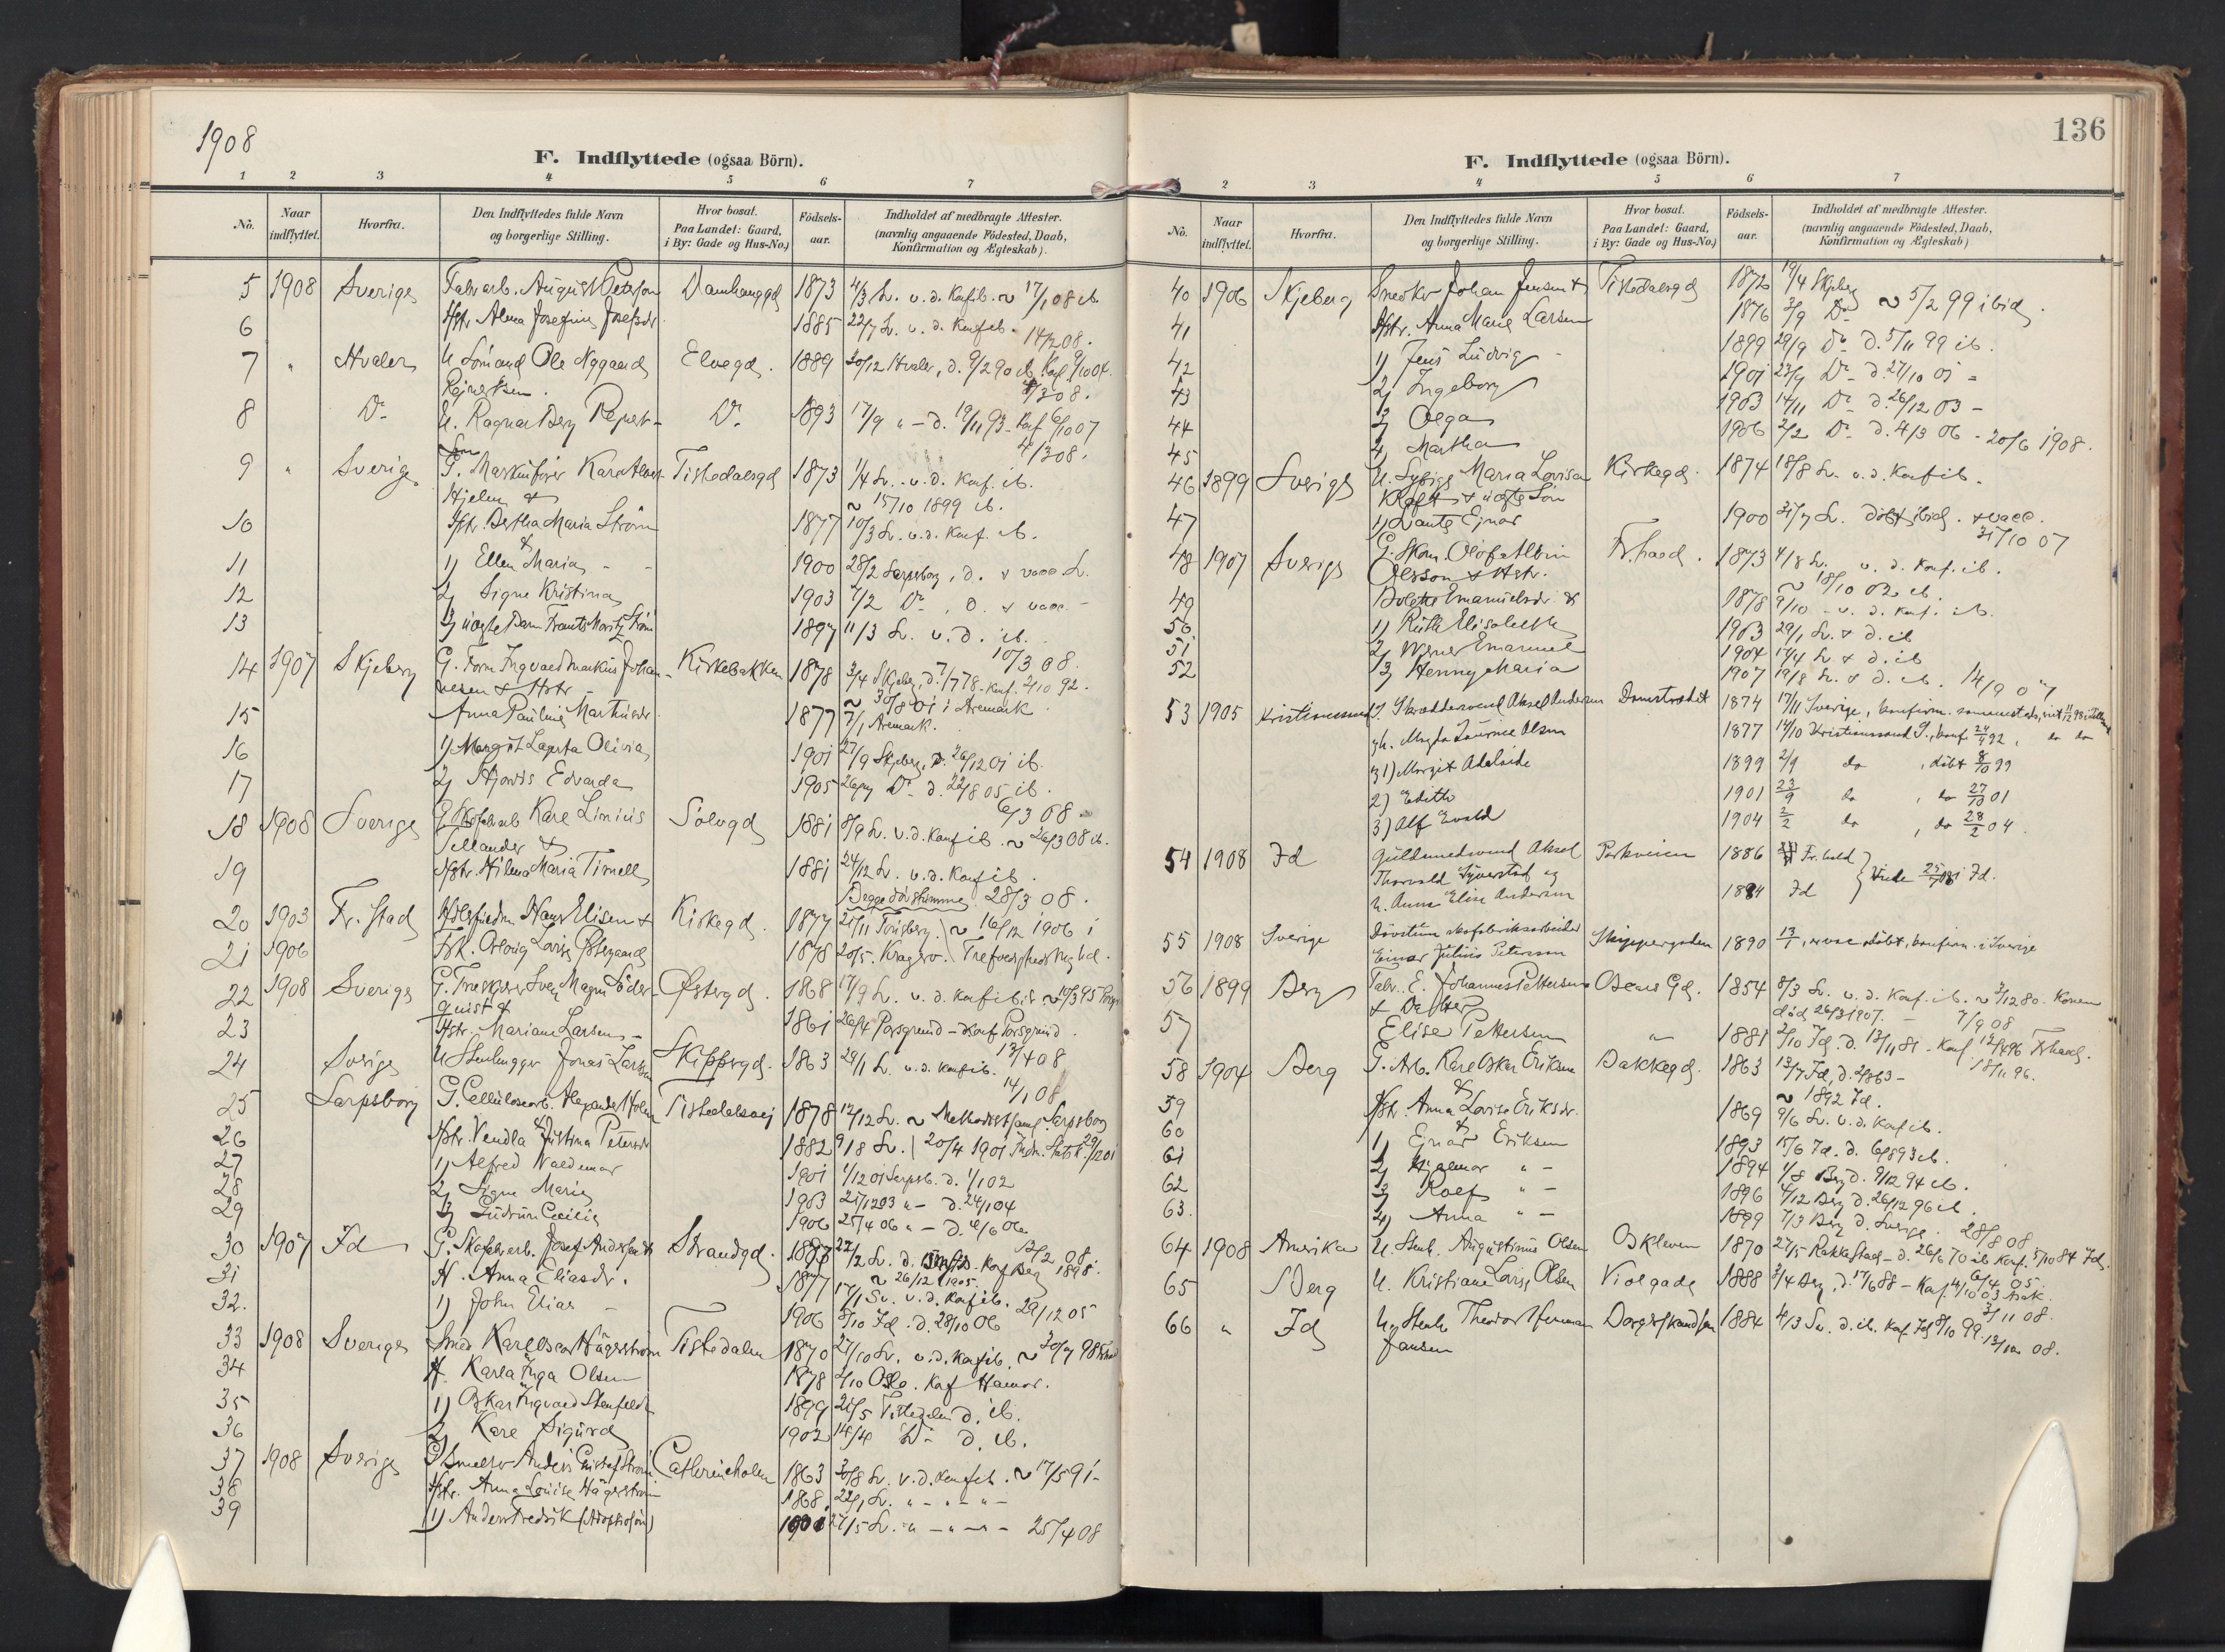 1908
F. Indflyttede (ogsaa Börn).
1 2 3 4 5 6 7
No. Naar indflyttet. Hvorfra. Den Indflyttedes fulde Navn og borgerlige Stilling. Hvor bosat. Paa Landet: Gaard, i By: Gade og Hus-No.) Födsels-aar. Indholdet af medbragte Attester. (navnlig angaaende Födested, Daab, Konfirmation og Ægteskab).
5 1908 Sverige Fabrarb. August Peterson Damhauggd 1873 4/3 Sv. v. d. Konf. ib. ~ 17/1 08 ib.
6 Hstr. Alma Josefine Josefsdr. 1885 22/7 Sv. v. d. Konf ib. 14/2 08.
7 " Hvaler U. Sömand Ole Nygaard Elvegd. 1889 30/12 Hvaler, d. 9/2 90 ib. Konf 9/10 04.
Rejnertsen. 4/3 08.
8 Do U. Ragnar Berg Rejnert- Do 1893 17/9 " - d. 19/11 93 - Konf 6/10 07
sen 4/3 08.
9 " Sverige G. Maskinfyrer Karl Albert Tistedalsgd 1873 1/4 Sv. v. d. Konf. ib.
Hjelm & ~ 15/10 1899 ib.
10 Hstr. Bertha Maria Ström 1877 10/3 Sv. v. d. Konf. ib.
&
11 1) Ellen Maria 1900 28/2 Sarpsborg, d. & vacc. Sv.
12 2) Signe Kristina 1903 7/2 Do, d. & vacc. -
13 3) uægte Barn Frants Moritz Ström 1897 11/3 Sv. v. d. ib.
10/3 08.
14 1907 Skjeberg G. Form. Ingvald Markus Johan- Kirkebakken 1878 3/4 Skjeberg, d. 7/7 78 - Konf. 2/10 92.
nesen & Hstr - ~ 30/8 01 i Aremark
15 Anna Pauline Marthinsdr. 1877 7/1 Aremark.
16 1) Margit Lagerta Olivia 1901 27/9 Skjeberg, d. 26/12 01 ib.
17 2) Hjørdis Edvarda 1905 Do d. 22/8 05 ib.
6/3 08
18 1908 Sverige G. Skofabrarb Karl Linius Sölvgd 1881 8/9 Sv. v. d. Konf ib. ~ 26/3 08 ib.
Tellander &
19 Hstr. Hilma Maria Timell 1881 24/12 Sv. v. d. Konf ib.
Begge døvstumme 28/3 08.
20 1903 Fr.stad Hans Elisen & Kirkegd. 1877 21/11 Tönsberg. ~ 16/12 1906 i
21 1906 Frk. Louise Østgaard 1878 20/5. Kragerø.
22 1908 Sverige G. Sven Magnus Söder- Østergd. 1868 17/9 Sv. v. d. Konf ib
quist &
23 Hstr. Mariane Larsen - 1861 26/4 Porsgrund - Konf Porsgrund.
13/4 08
24 Sverige U. Stenhugger Jonas Larsson Skippergd. 1863 29/1 Sv. v. d. Konf ib.
14/1 08
25 Sarpsborg G. Cellulosearb. Alexander Holm Tistedalsvej 1878 12/12 Sv. ~ Methodistsamf. Sarpsborg
26 Hstr. Vendla Justina Petersdr 1882 9/8 Sv. 20/4 1901
27 1) Alfred Valdemar 1901 1/12 01 Sarpsb. d. 1/1 02
28 2) Signe Marie 1903 d. 24/1 04
29 3) Gudrun Cecilie 1906 25/4 06 " - d. 4/6 06
12/2 08.
30 1907 Id G. Skofabrarb. Josef Andersen & Strandgd. Konf Berg 1898.
31 H. Anna Eliasdr. 1877 17/1 Sv. v. d. Konf ib. ~ 26/12 1905. 29/12 05
32. 1) John Elias - 1906 8/10 Id. d. 28/10 06
33 1908 Sverige Smed Karl Oscar Hägerström Tistedalen 1870 21/10 Sv. v. d. Konf ib. ~ 30/7 98
34 H. Karla Inga Olsen 1878 2/10 Oslo. Konf Hamar.
35 1) Oskar Ingvald Stenfeldt 1899 21/5 Tistedalen d. ib.
36 2) Karl Sigurd 1902 14/4 Do d. ib.
37 1908 Sverige G. Anders Gustaf Ström Catherineholm 1863 30/8 Sv. v. d. Konf ib. ~ 17/5 91 -
38 Hstr. Anna Louise Hägerström 1868. 22/1 Sv. " - " - " -
39 1) Anders Fredrik (Adoptivsön) 1901 27/5 Sv. " - " - " - 25/4 08
136
F. Indflyttede (ogsaa Börn).
1 2 3 4 5 6 7
No. Naar indflyttet. Hvorfra. Den Indflyttedes fulde Navn og borgerlige Stilling. Hvor bosat. Paa Landet: Gaard, i By: Gade og Hus-No.) Födsels-aar. Indholdet af medbragte Attester. (navnlig angaaende Födested, Daab, Konfirmation og Ægteskab)
40 1906 Skjeberg Snedker Johan Jensen & Tistedalsgd 1872 19/4 Skjeberg
41 Hstr. Anna Marie Larsen 1876 3/9 Do ~ 5/2 99 ibid.
42 1) Jens Ludvig - 1899 29/9 Do d. 5/11 99 ib.
43 2) Ingeborg 1901 23/9 Do d. 27/10 01 -
44 3) Olga 1903 14/11 Do d. 26/12 03 -
45 4) Martha 1906 2/2 Do d. 4/3 06 - 20/6 1908.
46 1899 Sverige U. Sypige Maria Lovisa Kirkegd. 1874 18/8 Sv. v. d. Konf ib.
Kraft & uægte Sön
47 1) Svante Ejnar 1900 31/7 Sv. döbt ibid. & vacc.
31/10 07
48 1907 Sverige G. Skom. Olof Albin Fr.hald. 1873 4/8 Sv. v. d. Konf. ib.
Olsson & Hstr. ~ 18/10 02 ib.
49 Emanuelsdr. & 1878 9/10 - v. d. Konf. ib.
50 1) Ruth Elisabeth 1903 29/1 Sv. & d. ib
51 2) Werner Emanuel 1904 17/4 Sv. & d. ib
52 3) Henny Maria 1907 19/8 Sv. & d. ib. 14/9 07
53 1905 Kristianssund G. Skræddersvend Aksel Andersen Damstrædet 1874 17/11 Sverige, konfirm. sammesteds,
gh. Magda Laurine Olsen 1877 14/10 Kristianssund S., konf 24/4 92, do do
1) Margit Adelaide 1899 2/9 do, döbt 8/10 99
2) Edith 1901 23/9 do, do 27/10 01
3) Alf Evald 1904 2/2 do, do 28/2 04.
54 1908 Id Guldsmedsvend Aksel Parkveien 1886 Fr.hald
Thorvald Syverstad og
h. Anna Elise Andersen 1884 Id Id.
55 1908 Sverige Døvstum skofabriksarbeider Skippergaden 1890 13/1, vacc, döbt, konfirm. i Sverige
Einar Julius Peterson
56 1899 Berg Fabr. E. Johannes Pettersen Oscars Gd. 1854 8/3 Sv. v. d. Konf. ib. ~ 3/12 80. Konen
& Datter död 26/3 1907. - 7/9 08
57 Elise Pettersen " 1881 2/10 Id. d. 13/11 81 - Konf. Fr.hald.
18/11 96.
58 1904 Berg G. Arb. Karl Oskar Eriksen Bakkegd. 1863 13/7 Id, d.
& ~ 1892 Id.
59 Hstr. Anna Lovise Eriksdr. 1869 9/6 Sv. v. d. Konf ib.
&
60 1) Ejnar Eriksen 1893 15/6 Id. d. 6/8 93 ib.
61 2) Hjalmar " - 1894 1/8 Berg d. 9/12 94 ib.
62 3) Rolf " - 1896 4/12 Berg d. 26/12 96 ib.
63. 4) Anna " - 1899 7/3 Berg d. Sverige. 28/8 08
64 1908 Amerika U. Stenh. Augustinus Olsen Oskleven 1870 27/5 Rakkestad - d. 26/6 70 ib Konf. 5/10 84 Id.
6/4 05.
65 Berg U. Kristiane Lovise Olsen Violgade 1888 3/4 Berg, d. 17/6 88 - Konf. 4/10 03
3/11 08.
66 " Id U. Stenh. Theodor Herman 1884 4/3 Sv. d. ib. Konf Id 8/10 99. 13/10 08.
Jansen